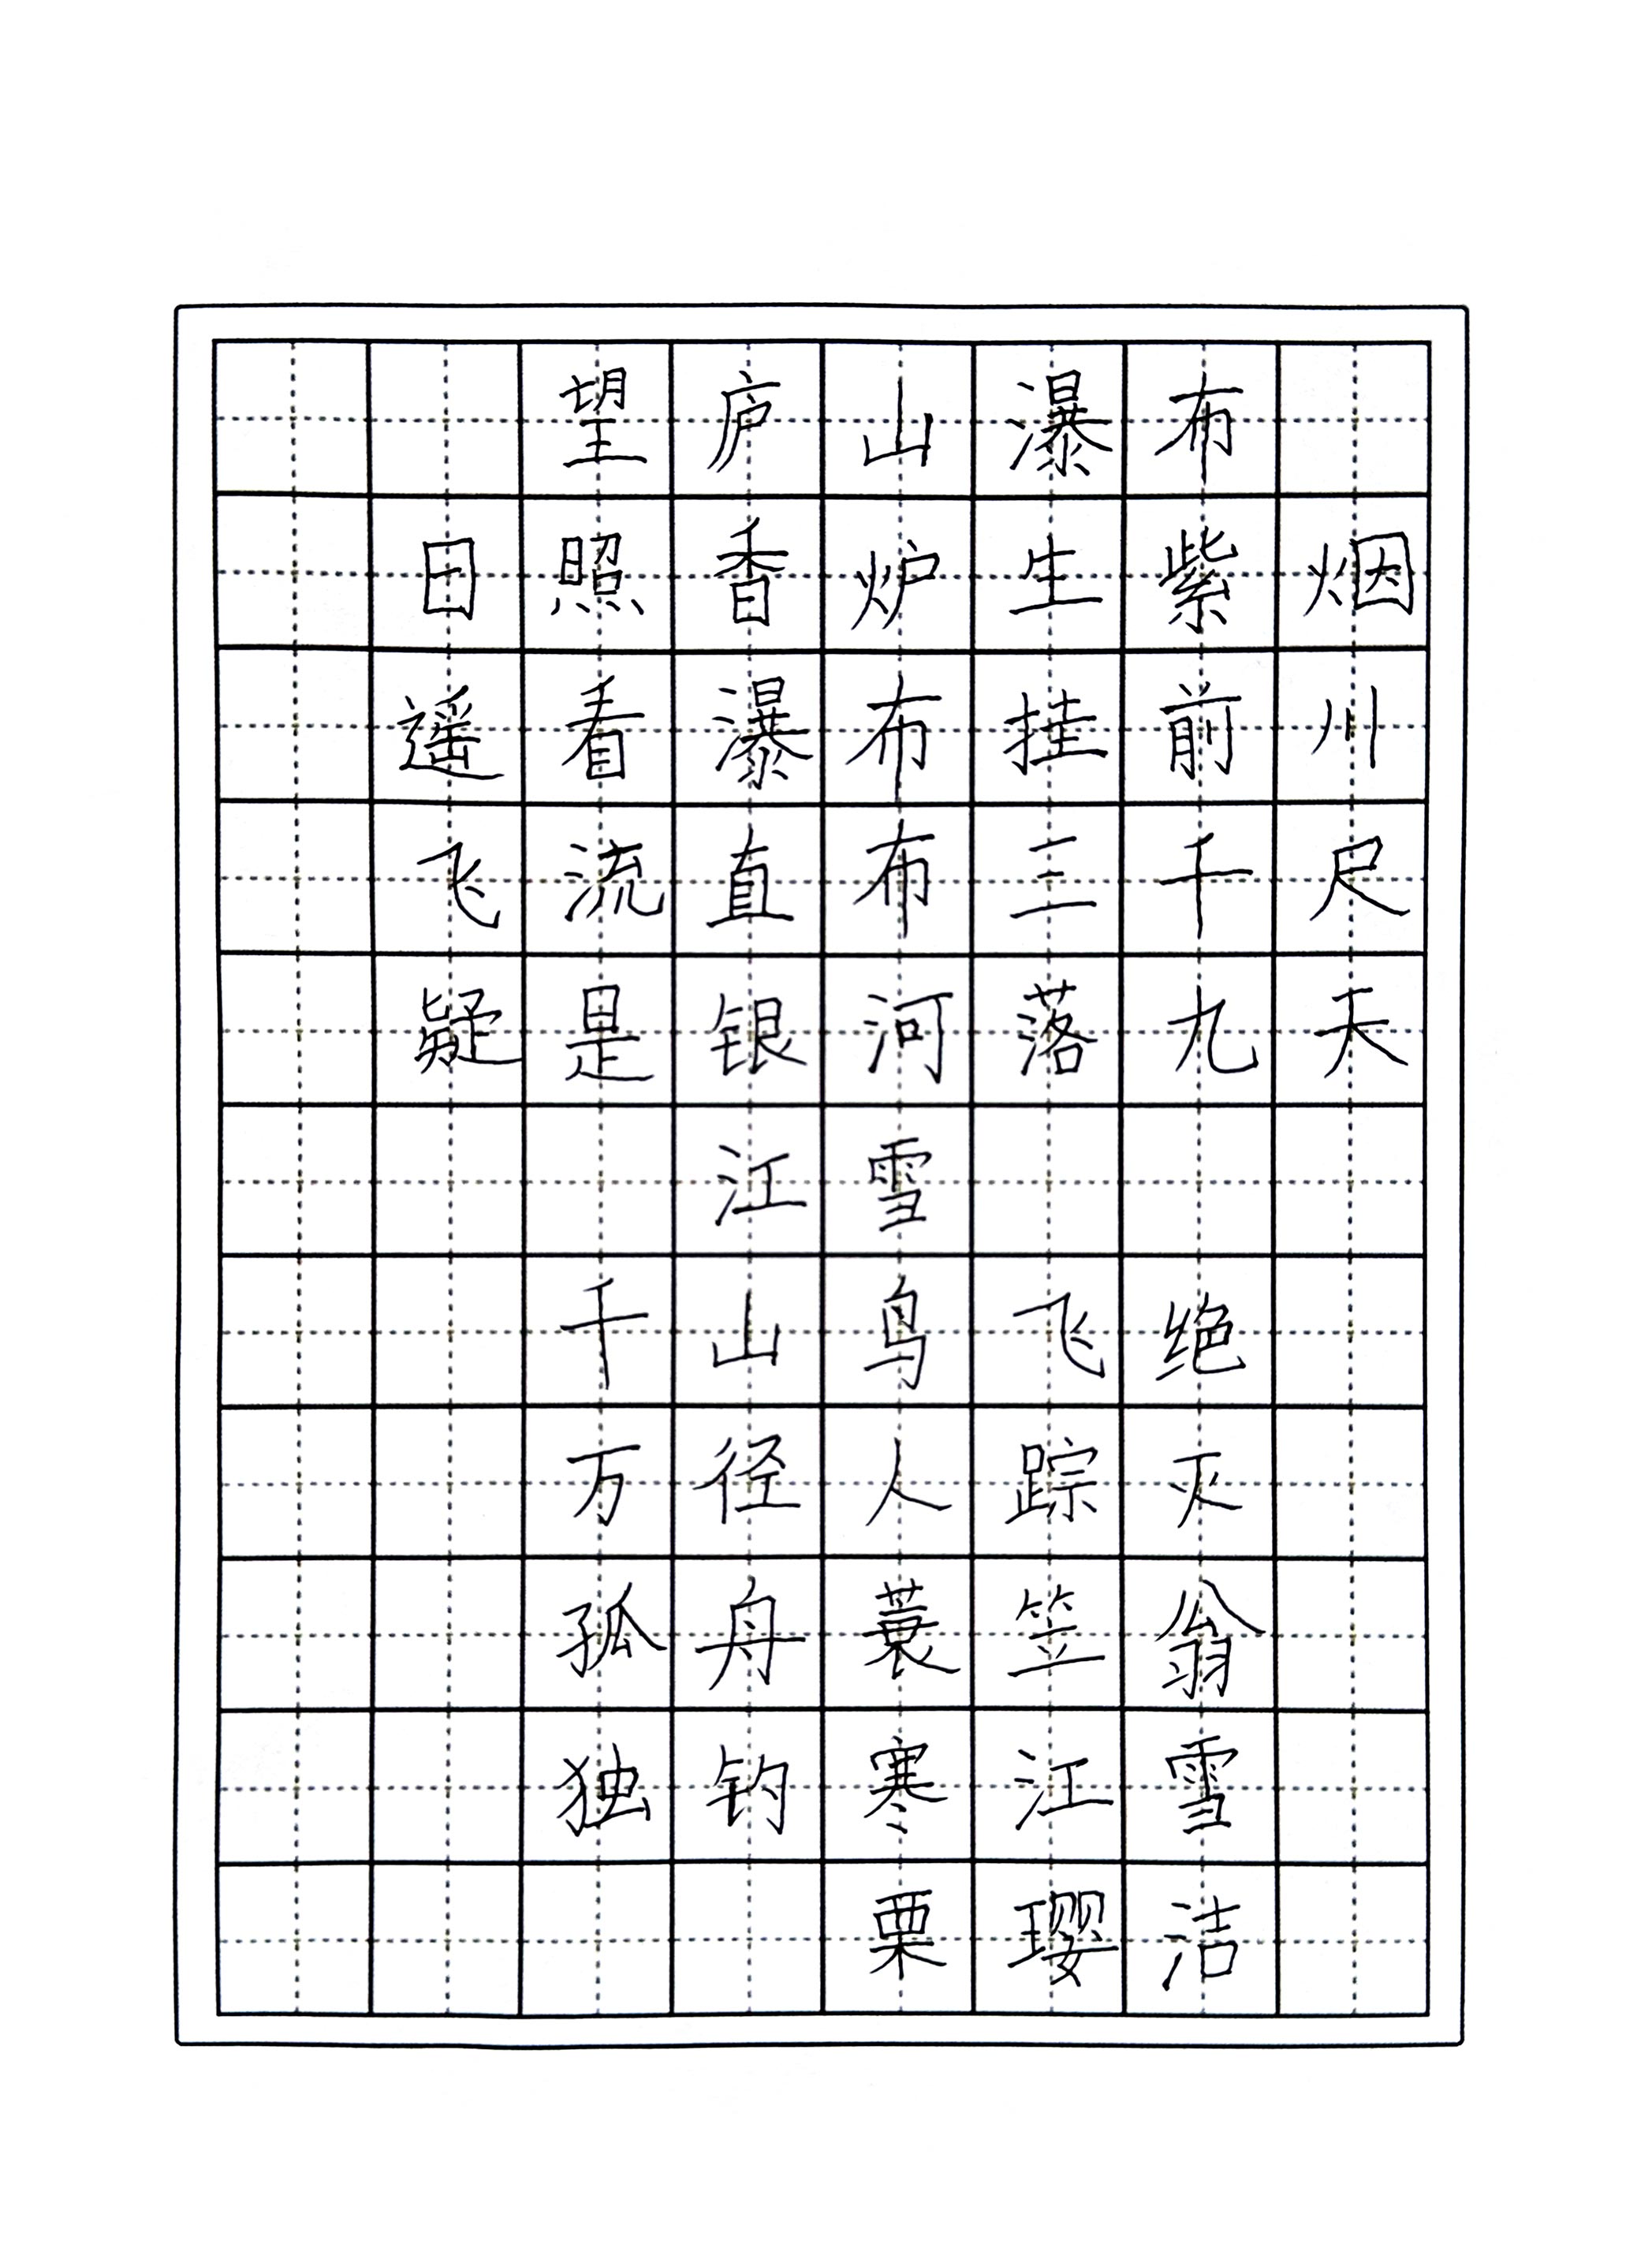 望庐山瀑布
日照香炉生紫烟
遥看瀑布挂前川
飞流直布三千尺
疑是银河落九天
江雪
千山鸟飞绝
万径人踪灭
孤舟蓑笠翁
独钓寒江雪
栗璎洁